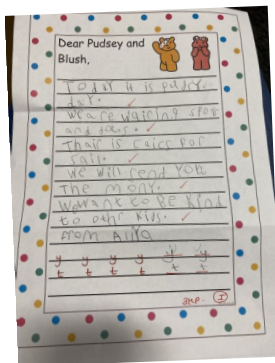 Dear Pudsey and
Blush,
Today it is pudsey
day.
We are wairing spots
and
Thair is caics for
sail.
We will send you
The mony.
We want to be kind
to othr kids.
From
y y y y y y
t t t t t t